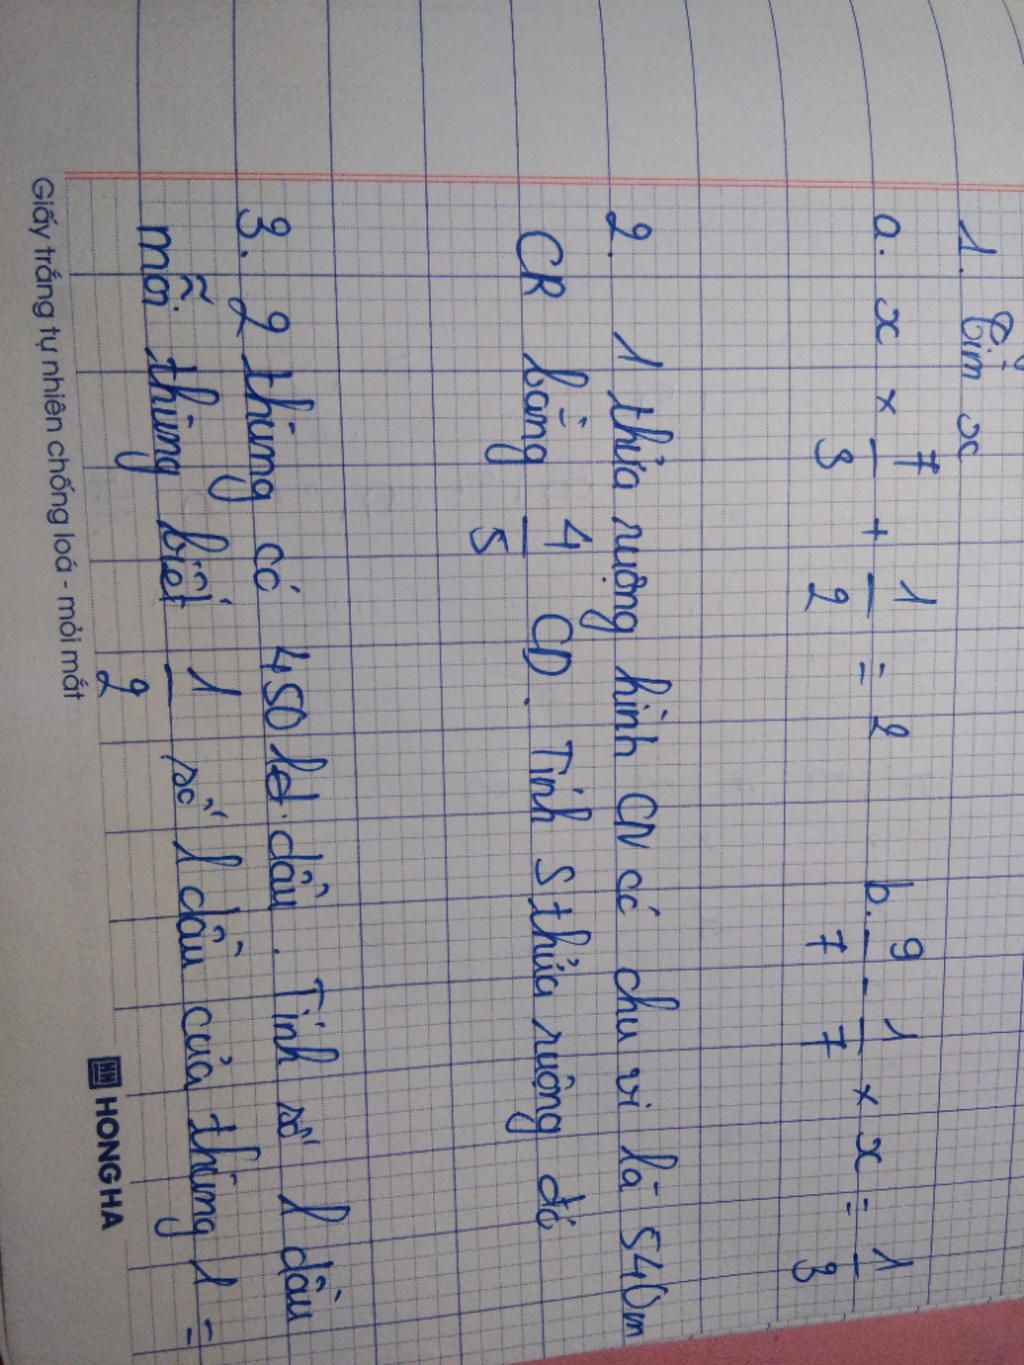 1. Tìm x
a. x × 7/3 + 1/2 = 2    b. 9/7 - 1/7 × x = 1/3
2. 1 thửa ruộng hình CN có chu vi là 540m
CR bằng 4/5 CD. Tính S thửa ruộng đó
3. 2 thùng có 450 let dầu. Tính số l dầu
mỗi thùng biết 1/2 số l dầu của thùng 1 =
Giấy trắng tự nhiên chống loá - mỏi mắt
HONG HA